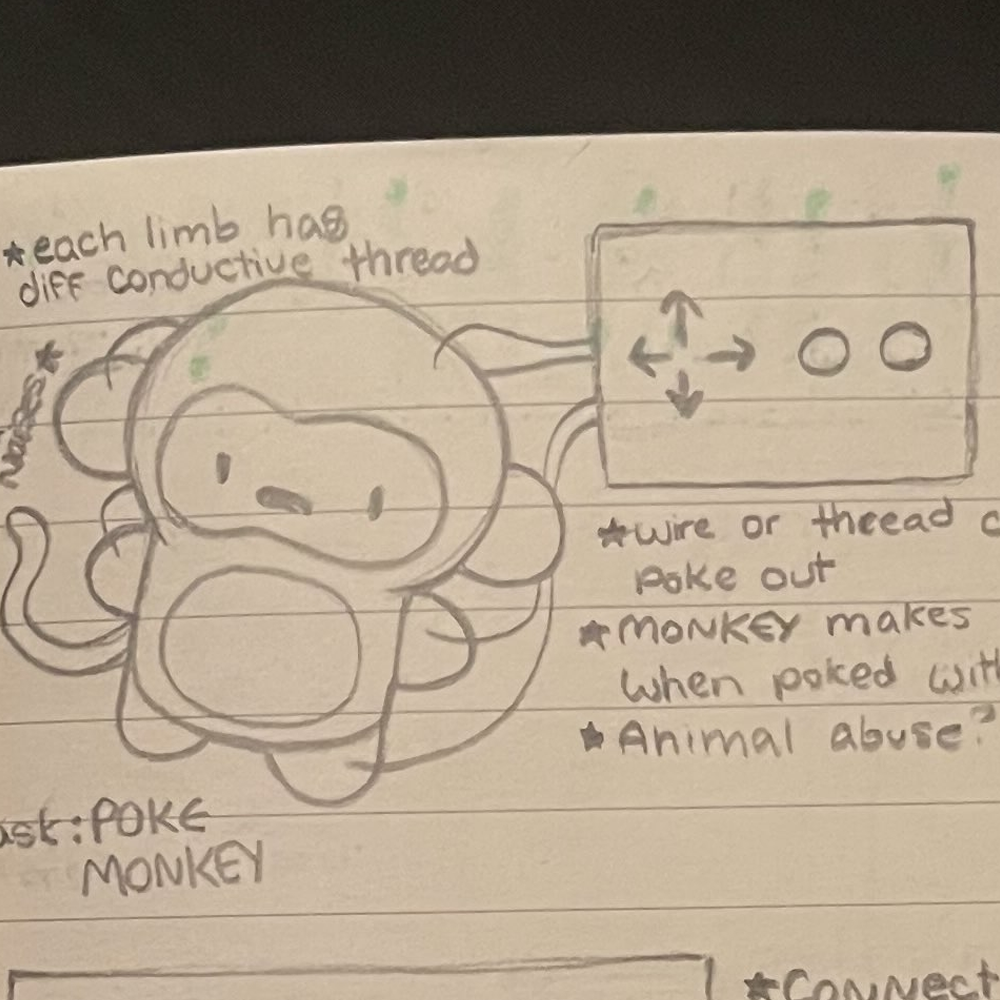 ★each limb has
diff conductive thread
★wire or thread
poke out
★MONKEY makes
when poked
★Animal abuse?
POKE
MONKEY
★Connect